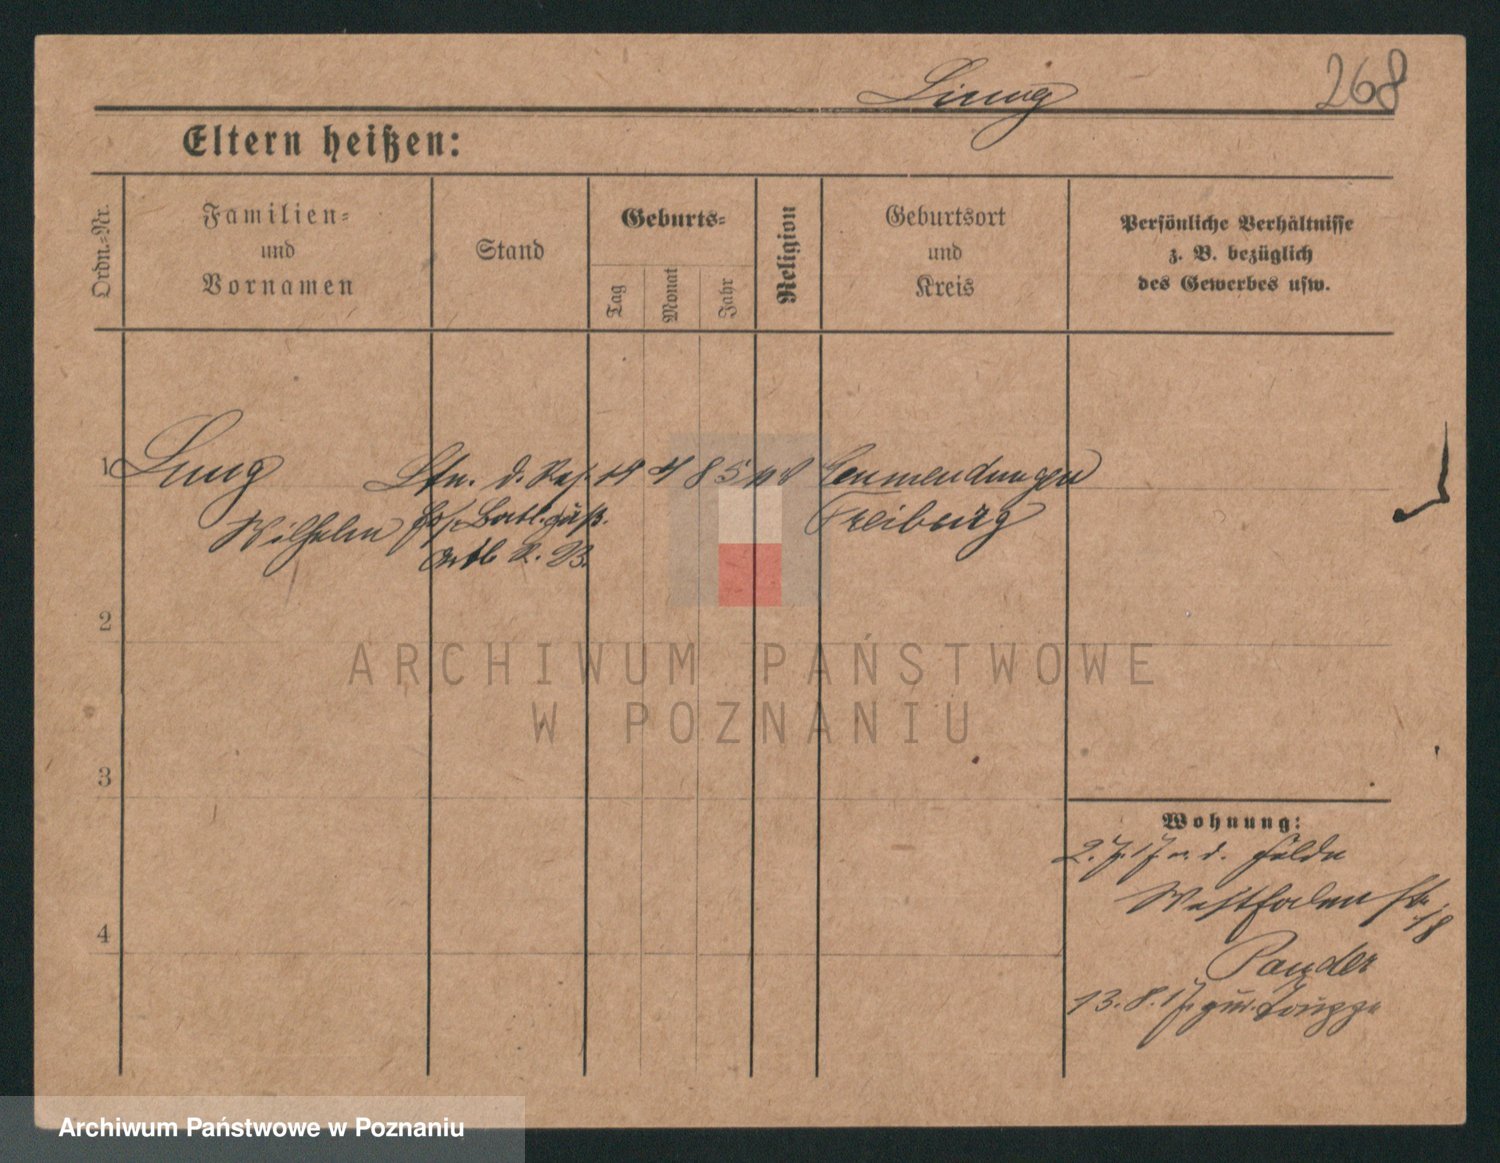 268
Eltern heißen:
Ordn.-Nr.
Familien-
und
Vornamen
Stand
Geburts-
Tag
Monat
Jahr
Religion
Geburtsort
und
Kreis
Persönliche Verhältnisse
z. B. bezüglich
des Gewerbes usw.
1 Ltn. d. Res. 14 4 85 Emmendingen
Wilhelm Freiburg
2
3
4
Wohnung:
2.7.17 v. d. Felde
Westfalenstr. 18
13.8.17 zur Truppe
ARCHIWUM PAŃSTWOWE
W POZNANIU
Archiwum Państwowe w Poznaniu